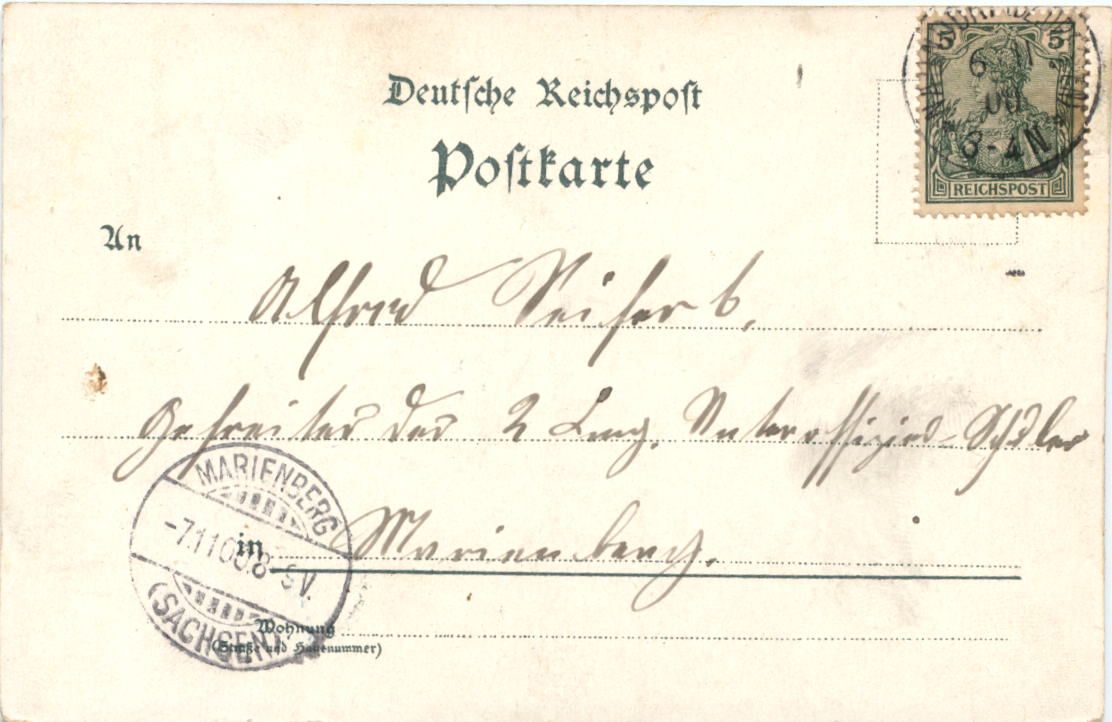 Deutsche Reichspost
5 5
6 11
00
3-4N
REICHSPOST
Postkarte
An
Alfred Seifert,
Gefreiter der 2 Comp. Unteroffizier-Schüler
MARIENBERG
-7.11.00.8-9V.
(SACHSEN)
in Marienberg.
Wohnung
(Straße und Hausnummer)